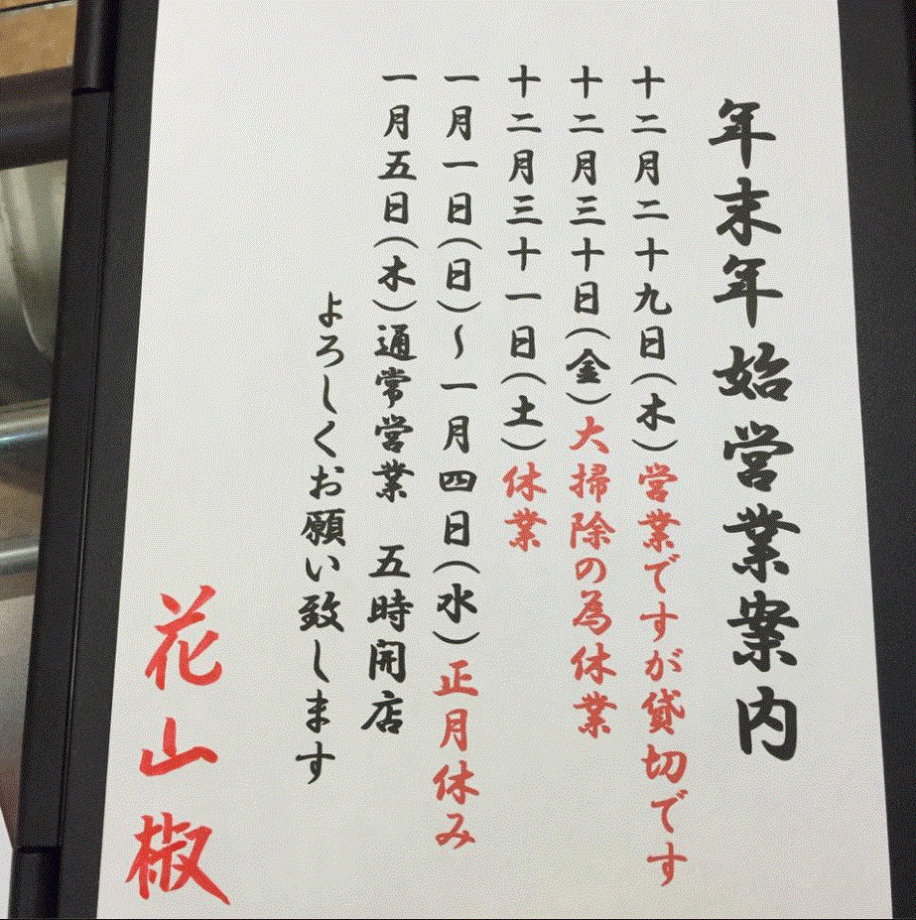 年末年始営業案内
十二月二十九日(木)営業ですが貸切です
十二月三十日(金)大掃除の為休業
十二月三十一日(土)休業
一月一日(日)~一月四日(水)正月休み
一月五日(木)通常営業　五時開店
よろしくお願い致します
花山椒